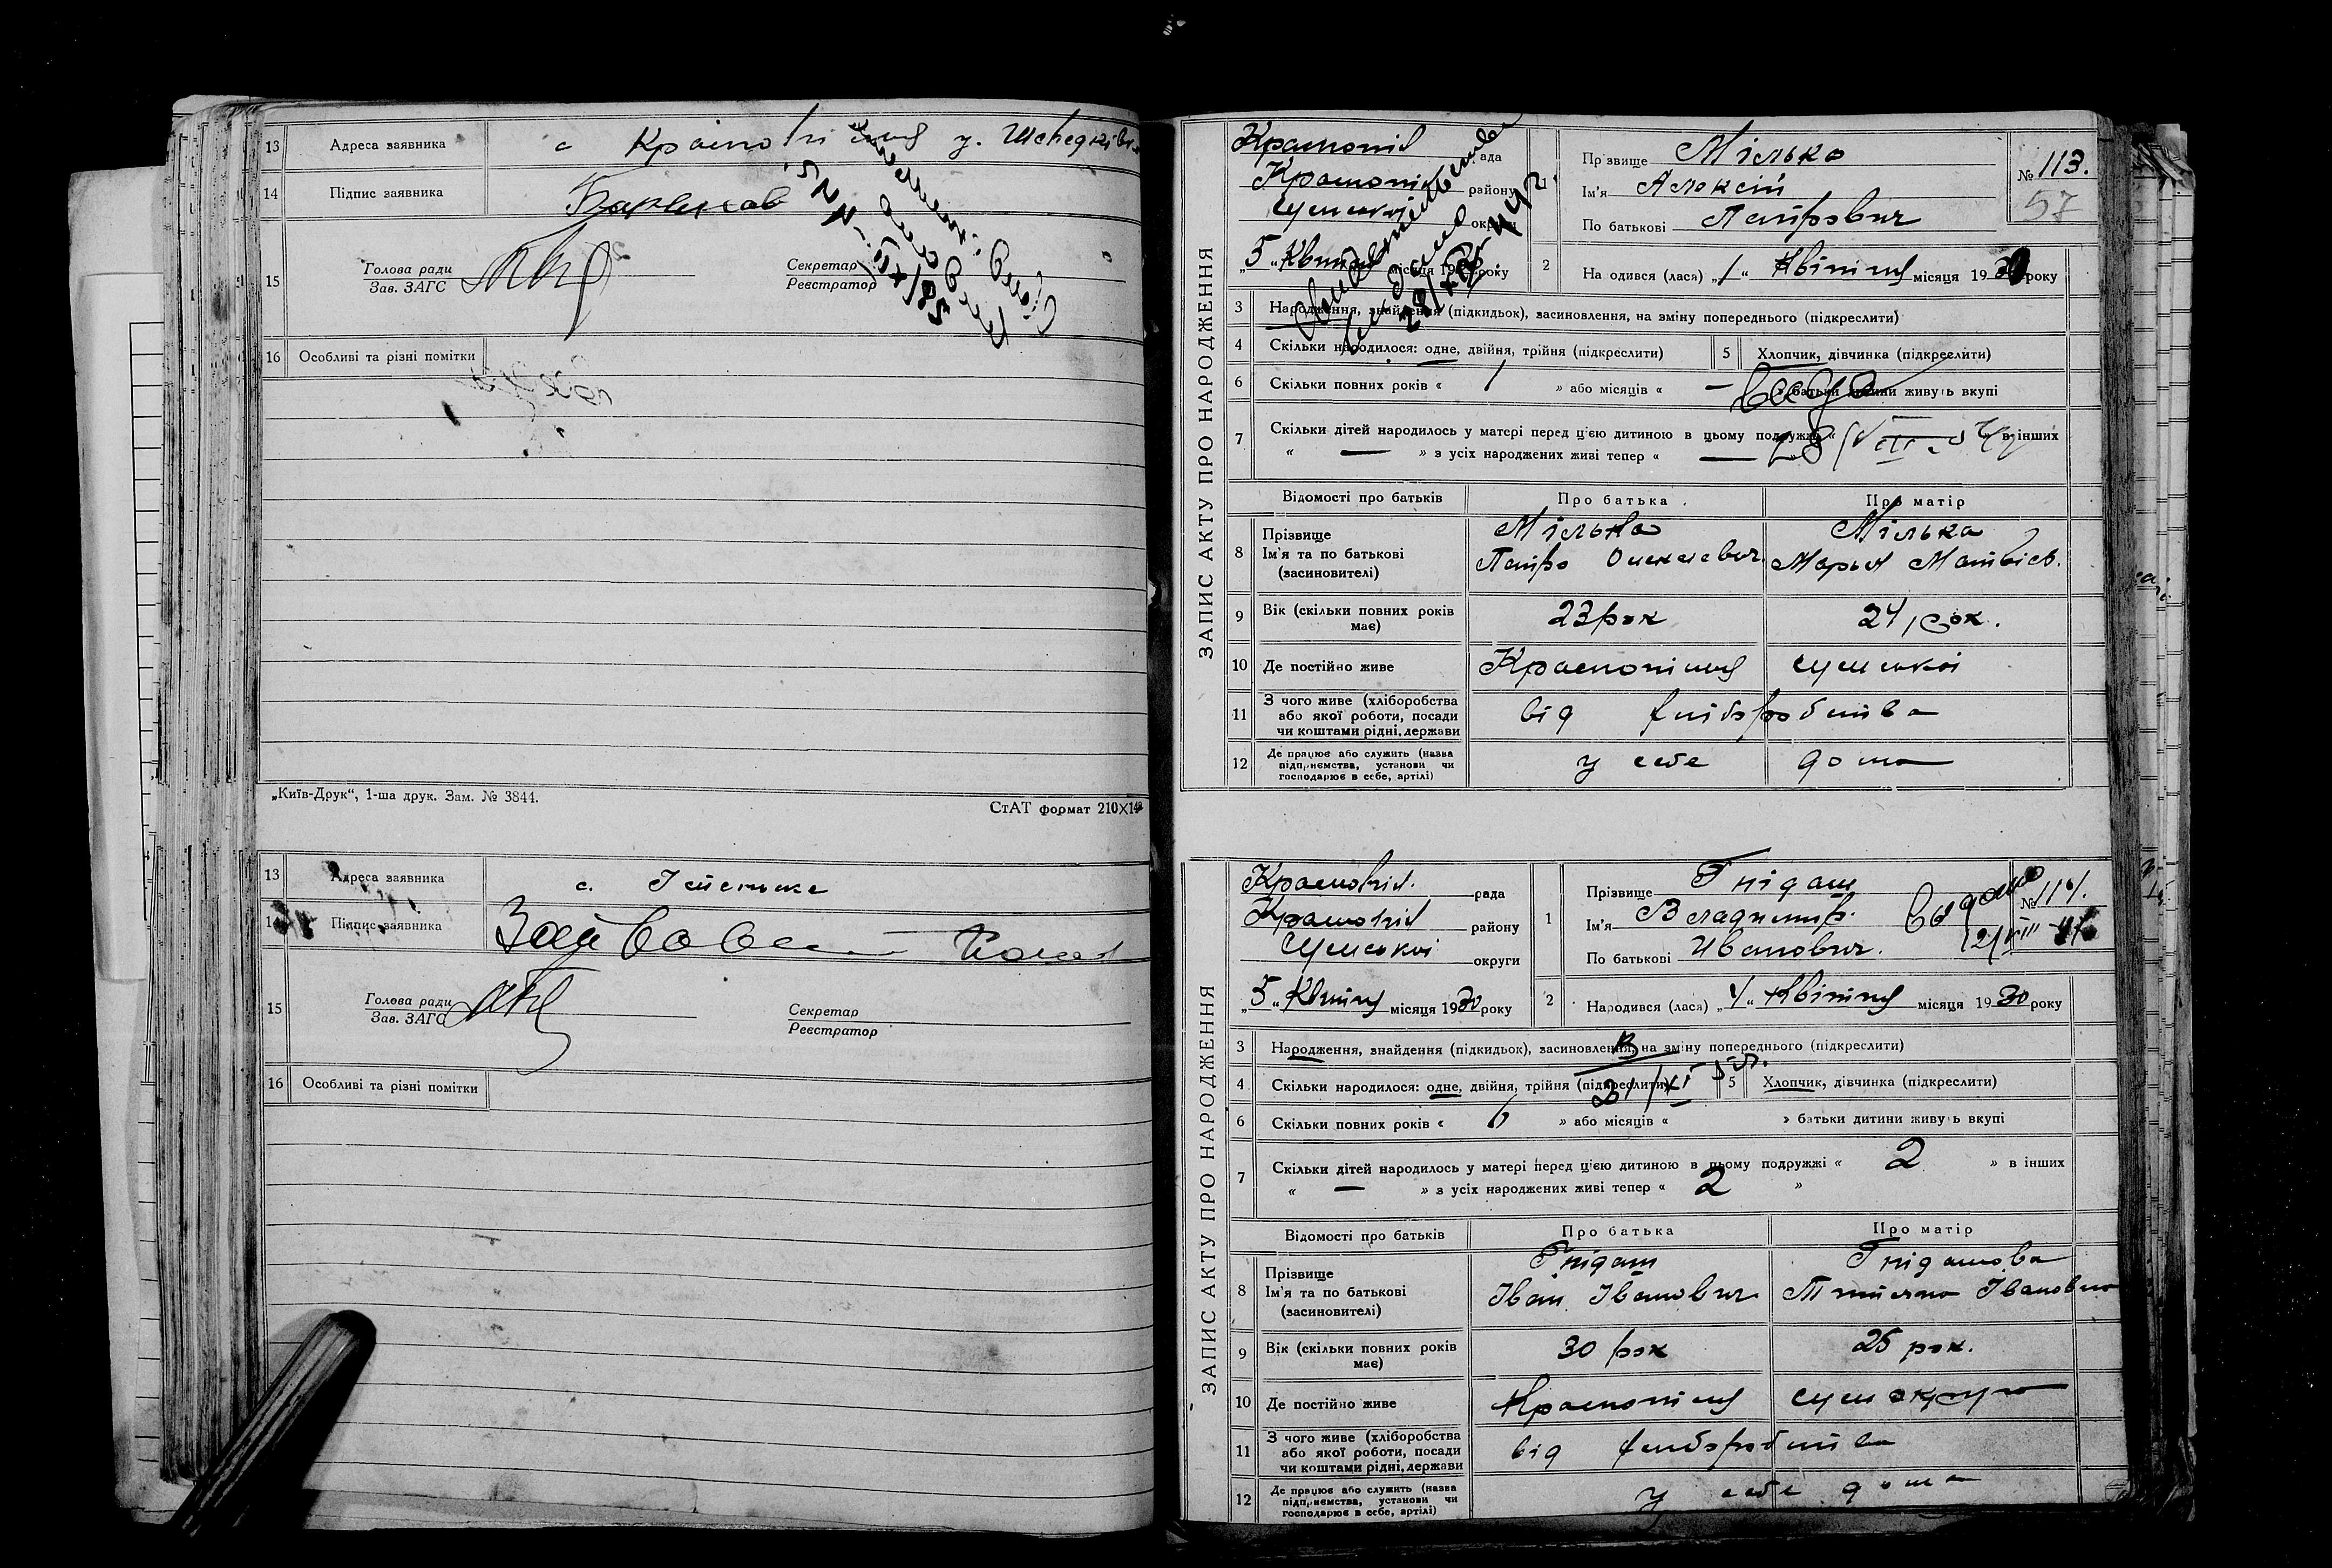 13 Адреса заявника с Краснопілля у.
14 Підпис заявника
15 Голова ради
Зав. ЗАГС
Секретар
Реєстратор
16 Особливі та різні помітки
„Київ-Друк“, 1-ша друк. Зам. № 3844.
СтАТ формат 210×148
13 Адреса заявника с.
14 Підпис заявника
15 Голова ради
Зав. ЗАГС
Секретар
Реєстратор
16 Особливі та різні помітки
ЗАПИС АКТУ ПРО НАРОДЖЕННЯ
Краснопіл рада
Краснопіл району
Сумської округи
„5“ Квітня місяця 19 року
1 Прізвище Мілька
Ім'я Алексій
По батькові Петрович
№ 113.
57
2 Народився (лася) „1“ Квітня місяця 1930 року
3 Народження, знайдення (підкидьок), засиновлення, на зміну попереднього (підкреслити)
4 Скільки народилося: одне, двійня, трійня (підкреслити)
5 Хлопчик, дівчинка (підкреслити)
6 Скільки повних років « 1 » або місяців « — » батьки дитини живуть вкупі
7 Скільки дітей народилось у матері перед цією дитиною в цьому подружжі « » в інших
« — » з усіх народжених живі тепер « — »
Відомості про батьків
Про батька
Про матір
8 Прізвище
Ім'я та по батькові
(засиновителі)
Мілька
Петро
Мілька
Марья Матвіев.
9 Вік (скільки повних років має)
23 рок
24 рок.
10 Де постійно живе
Краснопілля
Сумської
11 З чого живе (хліборобства
або якої роботи, посади
чи коштами рідні, держави
від хліборобства
12 Де працює або служить (назва
підприємства, установи чи
господарює в себе, артілі)
у себе дома
ЗАПИС АКТУ ПРО НАРОДЖЕННЯ
Краснопіл. рада
Краснопіл району
Сумської округи
„5“ Квітня місяця 1930 року
1 Прізвище Гнідаш
Ім'я Владимир.
По батькові Иванович.
Видано
№ 114.
2 Народився (лася) „4“ Квітня місяця 1930 року
3 Народження, знайдення (підкидьок), засиновлення, на зміну попереднього (підкреслити)
4 Скільки народилося: одне, двійня, трійня (підкреслити)
5 Хлопчик, дівчинка (підкреслити)
6 Скільки повних років « 6 » або місяців « » батьки дитини живуть вкупі
7 Скільки дітей народилось у матері перед цією дитиною в цьому подружжі « 2 » в інших
« — » з усіх народжених живі тепер « 2 »
Відомості про батьків
Про батька
Про матір
8 Прізвище
Ім'я та по батькові
(засиновителі)
Гнідаш
Іван Іванович
Гнідашова
Тетяна Івановна
9 Вік (скільки повних років має)
30 рок
25 рок.
10 Де постійно живе
Краснопілля
Сум округу
11 З чого живе (хліборобства
або якої роботи, посади
чи коштами рідні, держави
від хліборобства
12 Де працює або служить (назва
підприємства, установи чи
господарює в себе, артілі)
у себе дома